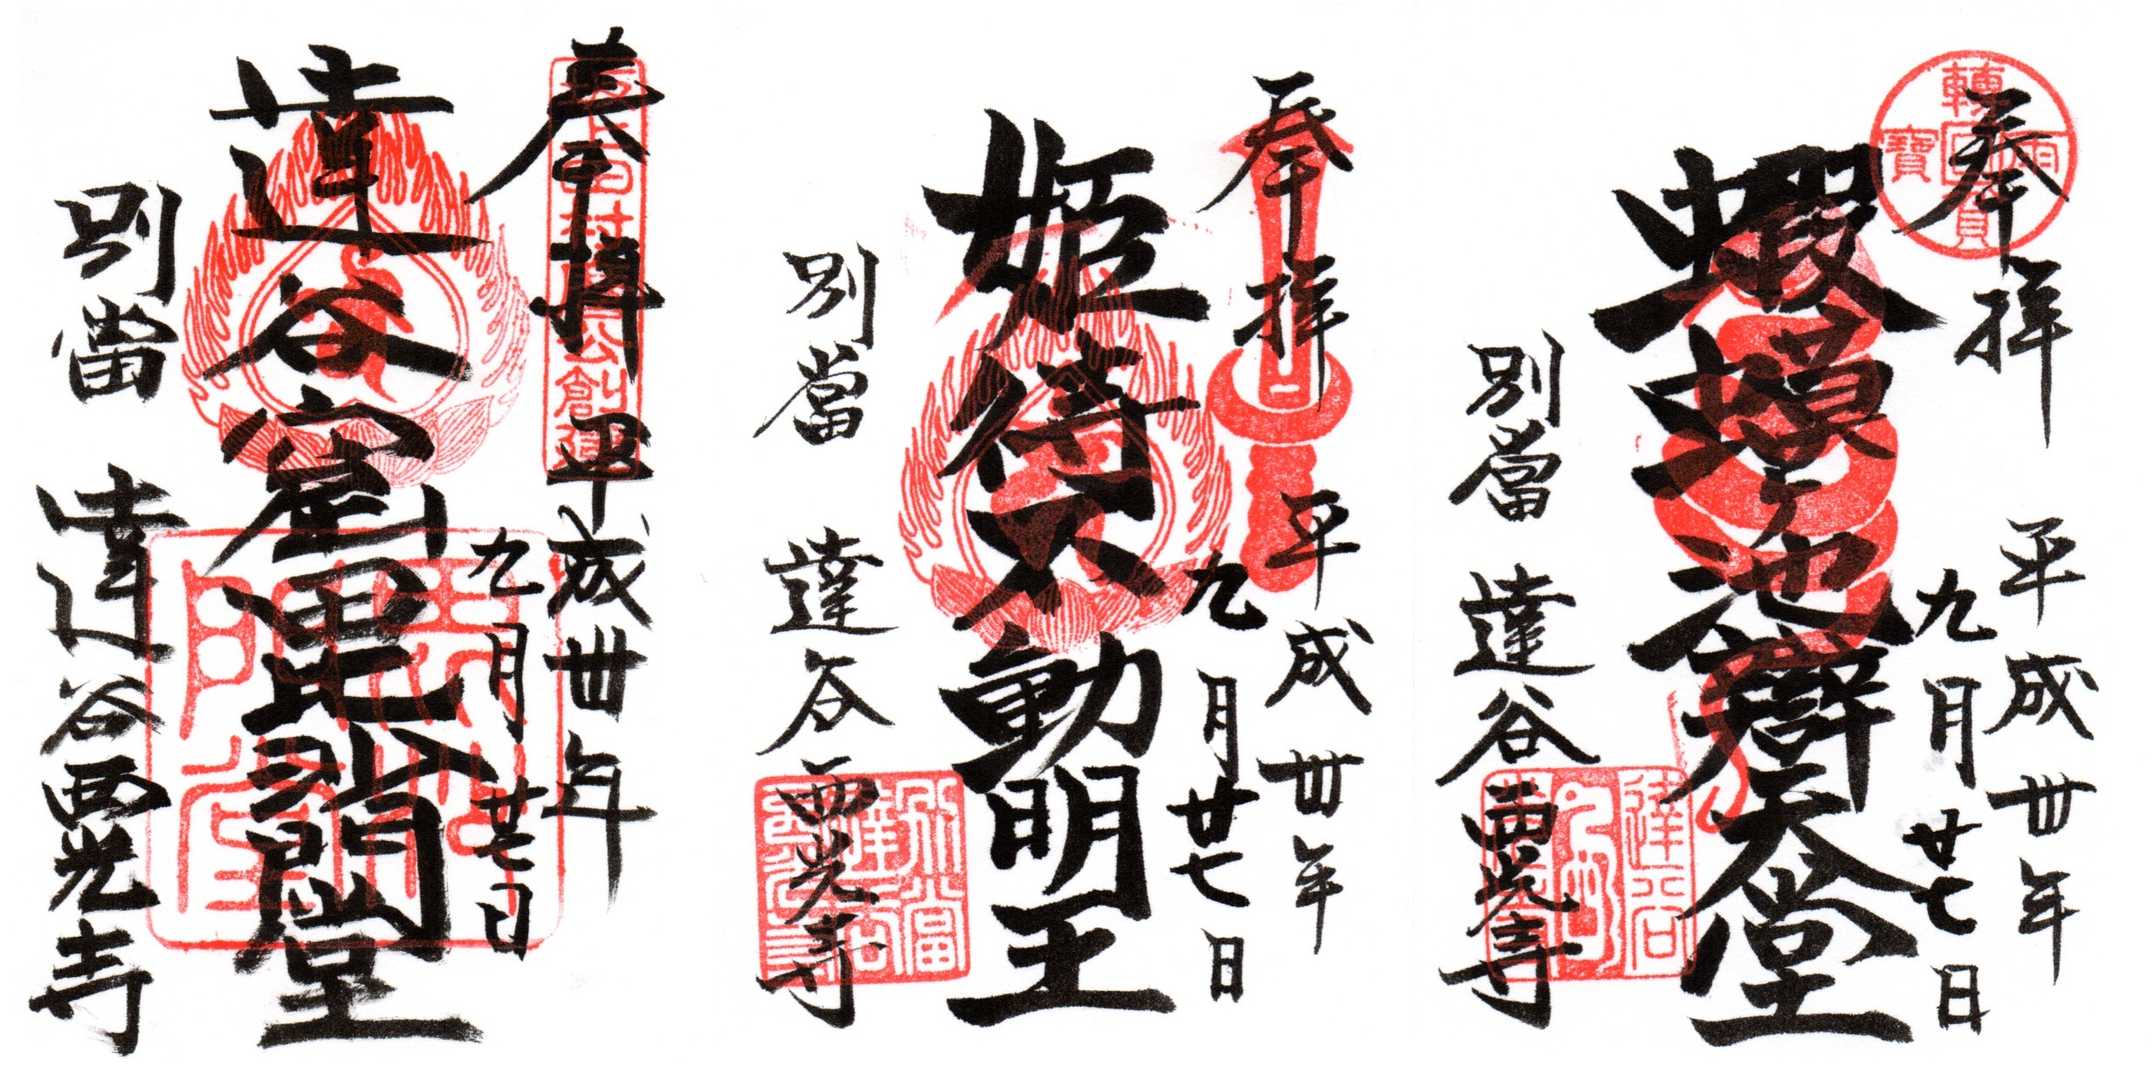 奉拝
平成丗年
九月廿七日
達谷窟毘沙門堂
別當 達谷西光寺
奉拝
平成丗年
九月廿七日
姫待不動明王
別當 達谷西光寺
奉拝
平成丗年
九月廿七日
蝦蟆ヶ池辯天堂
別當 達谷西光寺